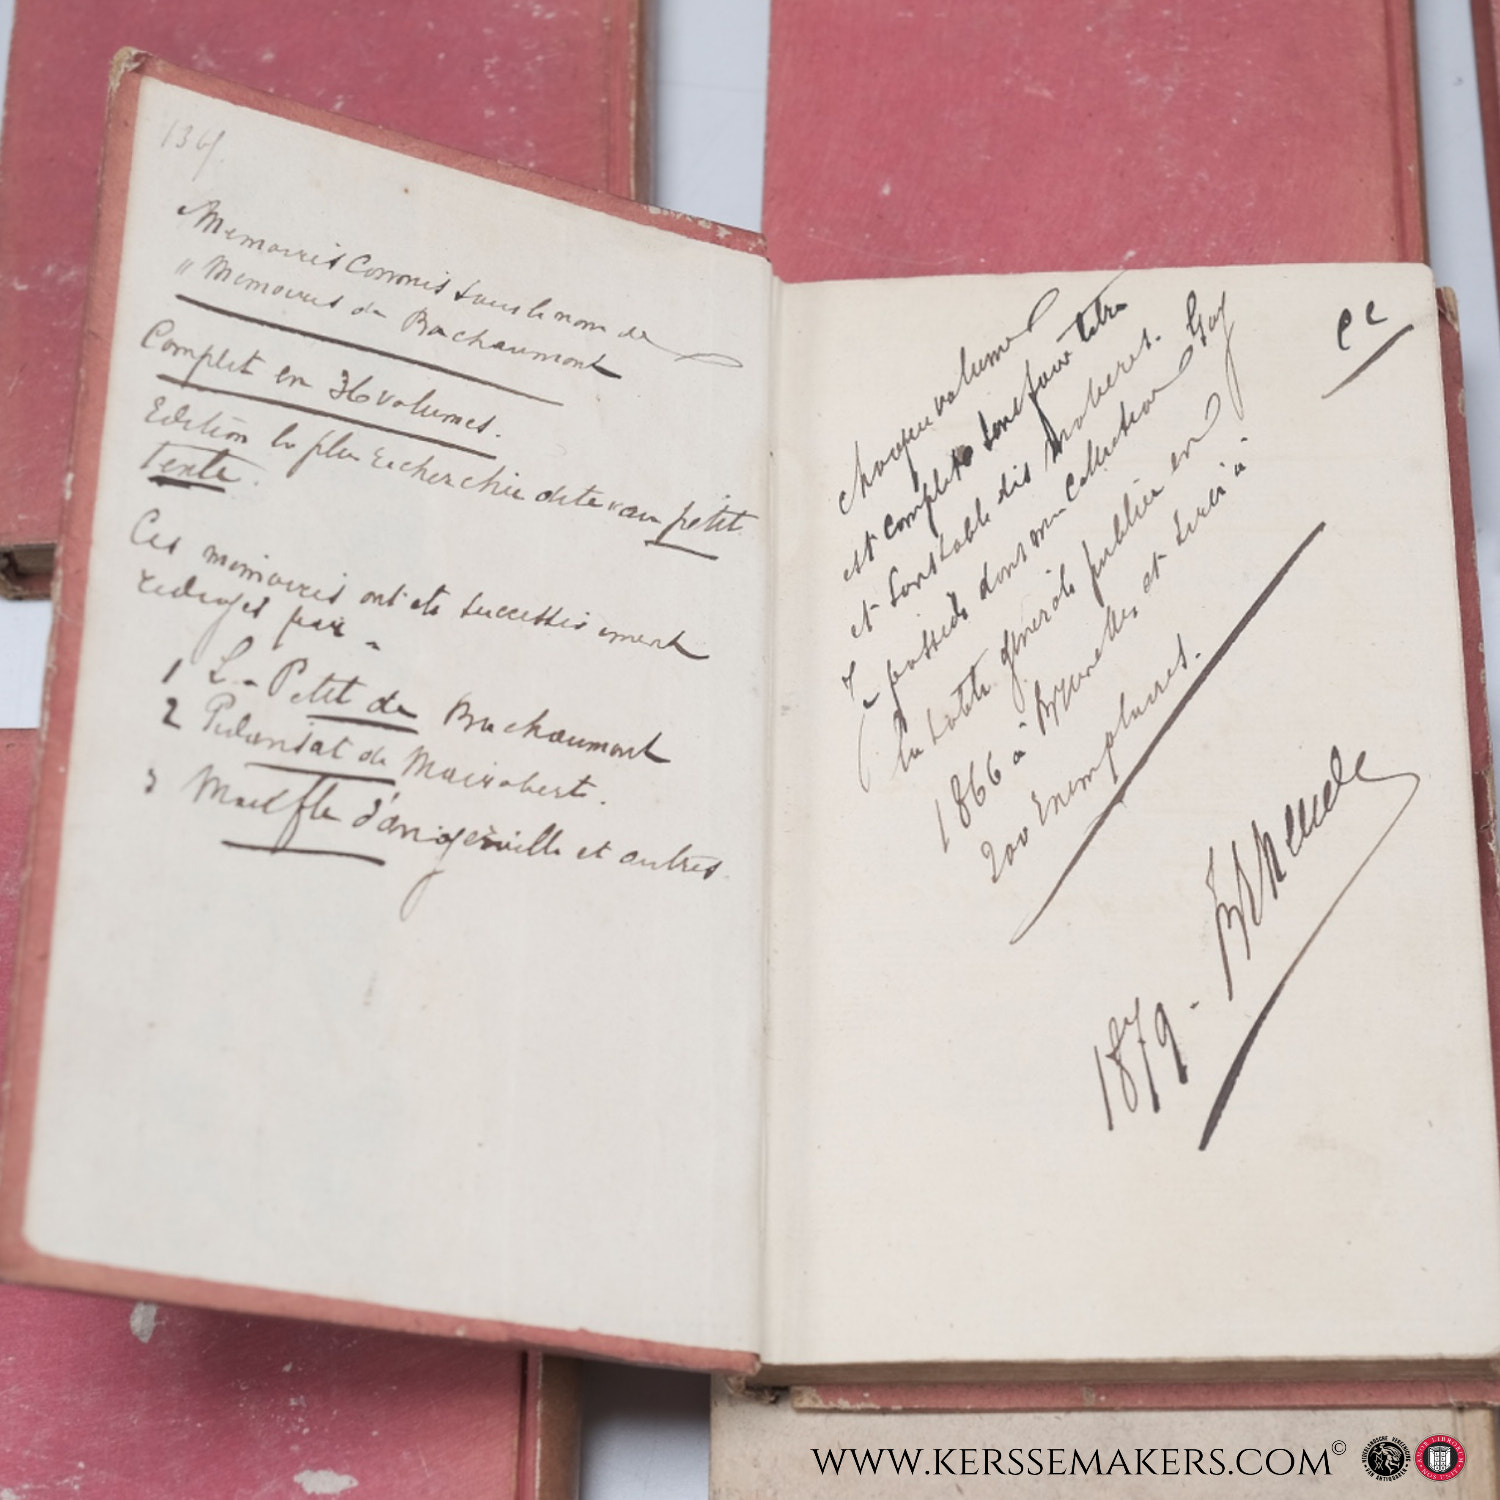 136f
Memoires Connus sous le nom de
" Memoires de Bachaumont
Complet en 36 volumes.
Edition la plus recherchée dite vau petit
texte.
Ces memoires ont ete successivement
rediges par -
1 L. - Petit de Bachaumont
2 Pidansat de Mairobert.
3 Mouffle d'angerville et autres.
cc
chaque volume
est complete sous faux titre
et sans table des matieres.
Je possede dans ma collection Gay
la table generale publiée en
1866 à Bruxelles et tirée a
200 Exemplaires.
1879 -
WWW.KERSSEMAKERS.COM©